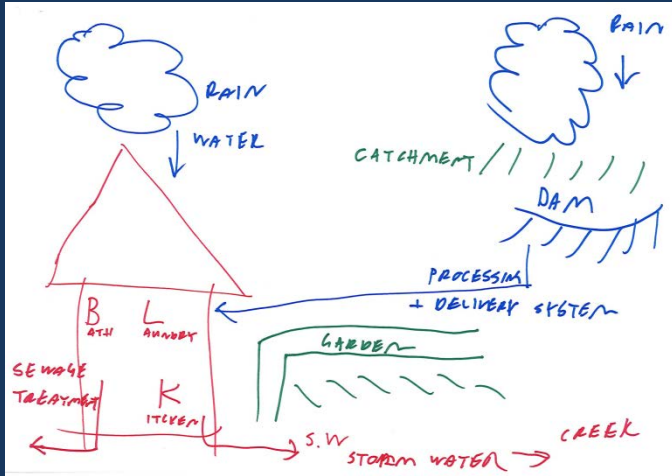 RAIN
WATER
RAIN
CATCHMENT
DAM
PROCESSING
+ DELIVERY SYSTEM
BATH
LAUNDRY
GARDEN
SEWAGE
TREATMENT
KITCHEN
S.W
STORM WATER → CREEK